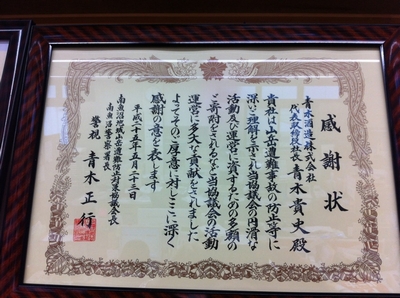 感謝状
青木酒造株式会社
代表取締役社長 青木貴史殿
貴社は山岳遭難事故の防止等に
深い理解を示され当協議会の円滑な
活動及び運営に資するための多額の
ご寄附をされるなど当協議会の活動
運営に多大な貢献をされました
よってそのご厚意に対しここに深く
感謝の意を表します
平成二十五年五月二十三日
南魚沼地域山岳遭難防止対策協議会長
南魚沼警察署長
警視 青木正行